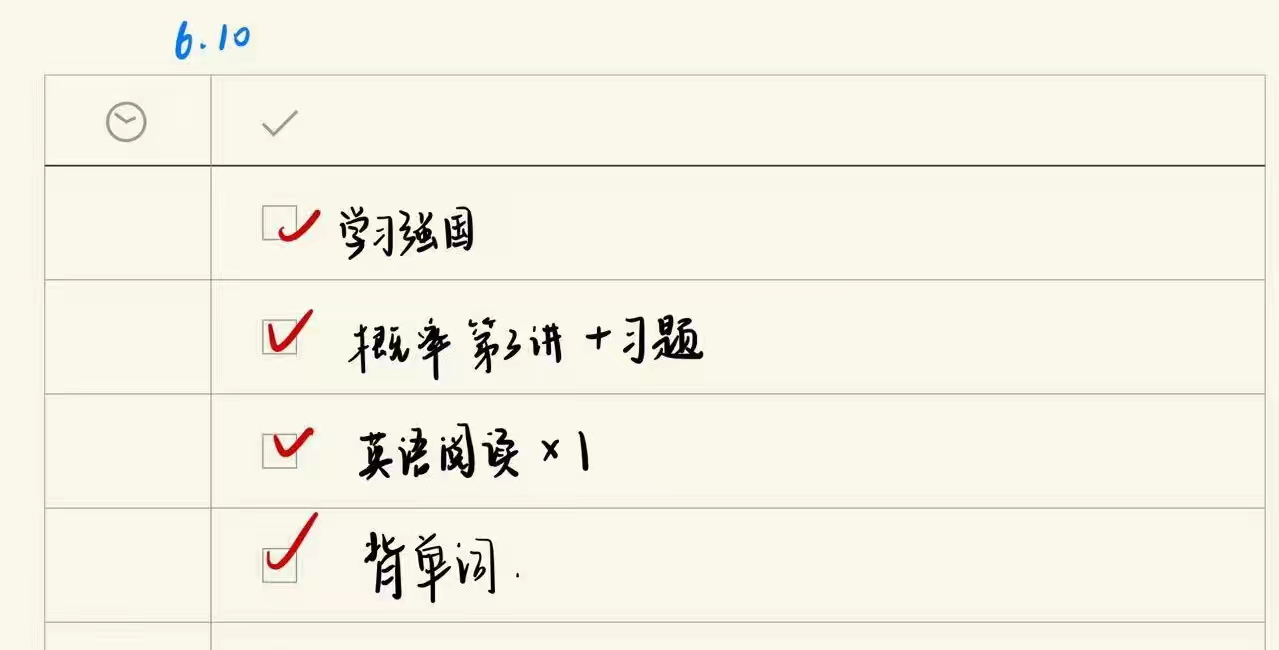 6.10
学习强国
概率 第3讲 +习题
英语阅读 ×1
背单词.